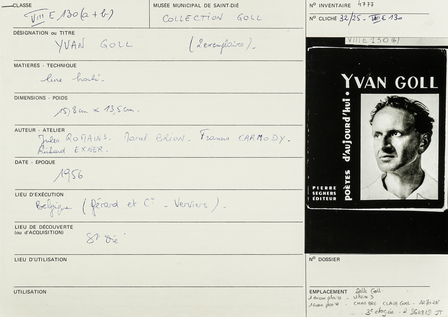 CLASSE
VIII E 130 (a+b)
MUSÉE MUNICIPAL DE SAINT-DIÉ
COLLECTION GOLL
N° INVENTAIRE 4777
N° CLICHÉ 32/25 - VIII E 130
DÉSIGNATION ou TITRE
YVAN GOLL (2 exemplaires).
MATIERES - TECHNIQUE
livre broché.
DIMENSIONS - POIDS
15,8cm x 13,5cm.
AUTEUR - ATELIER
Jules ROMAINS. Marcel BRION. Francis CARMODY.
Richard EXNER.
DATE - ÉPOQUE
1956
LIEU D'EXÉCUTION
Belgique (Gérard et Cie - Verviers).
LIEU DE DÉCOUVERTE
(ou D'ACQUISITION)
St Dié
LIEU D'UTILISATION
UTILISATION
VIII E 130
YVAN GOLL
poètes d'aujourd'hui
PIERRE
SEGHERS
ÉDITEUR
N° DOSSIER
EMPLACEMENT Salle Goll
1 exemplaire - vitrine 3
CHAMBRE CLAIRE GOLL
3e étagère